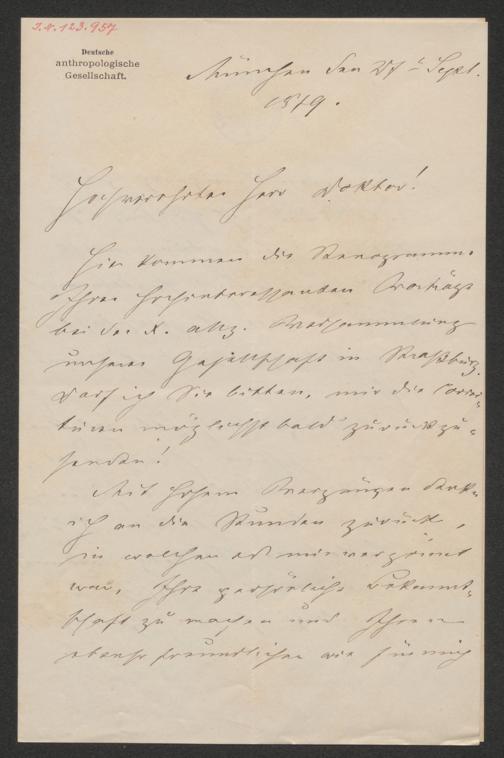 J.N. 123.957
Deutsche
anthropologische
Gesellschaft.
München den 27t Sept.
1879.
Hochverehrter Herr Doktor!
Hier kommen die Stenogramme
Ihrer hochinteressanten Vorträge
bei der X. allg. Versammlung
unserer Gesellschaft in Straßburg.
Darf ich Sie bitten, mir die Correc-
turen möglichst bald zurückzu-
senden!
Mit hohem Vergnügen denke
ich an die Stunden zurück,
in welchen es mir vergönnt
war, Ihre persönliche Bekannt-
schaft zu machen und Ihren
ebenso freundlichen wie sinnig